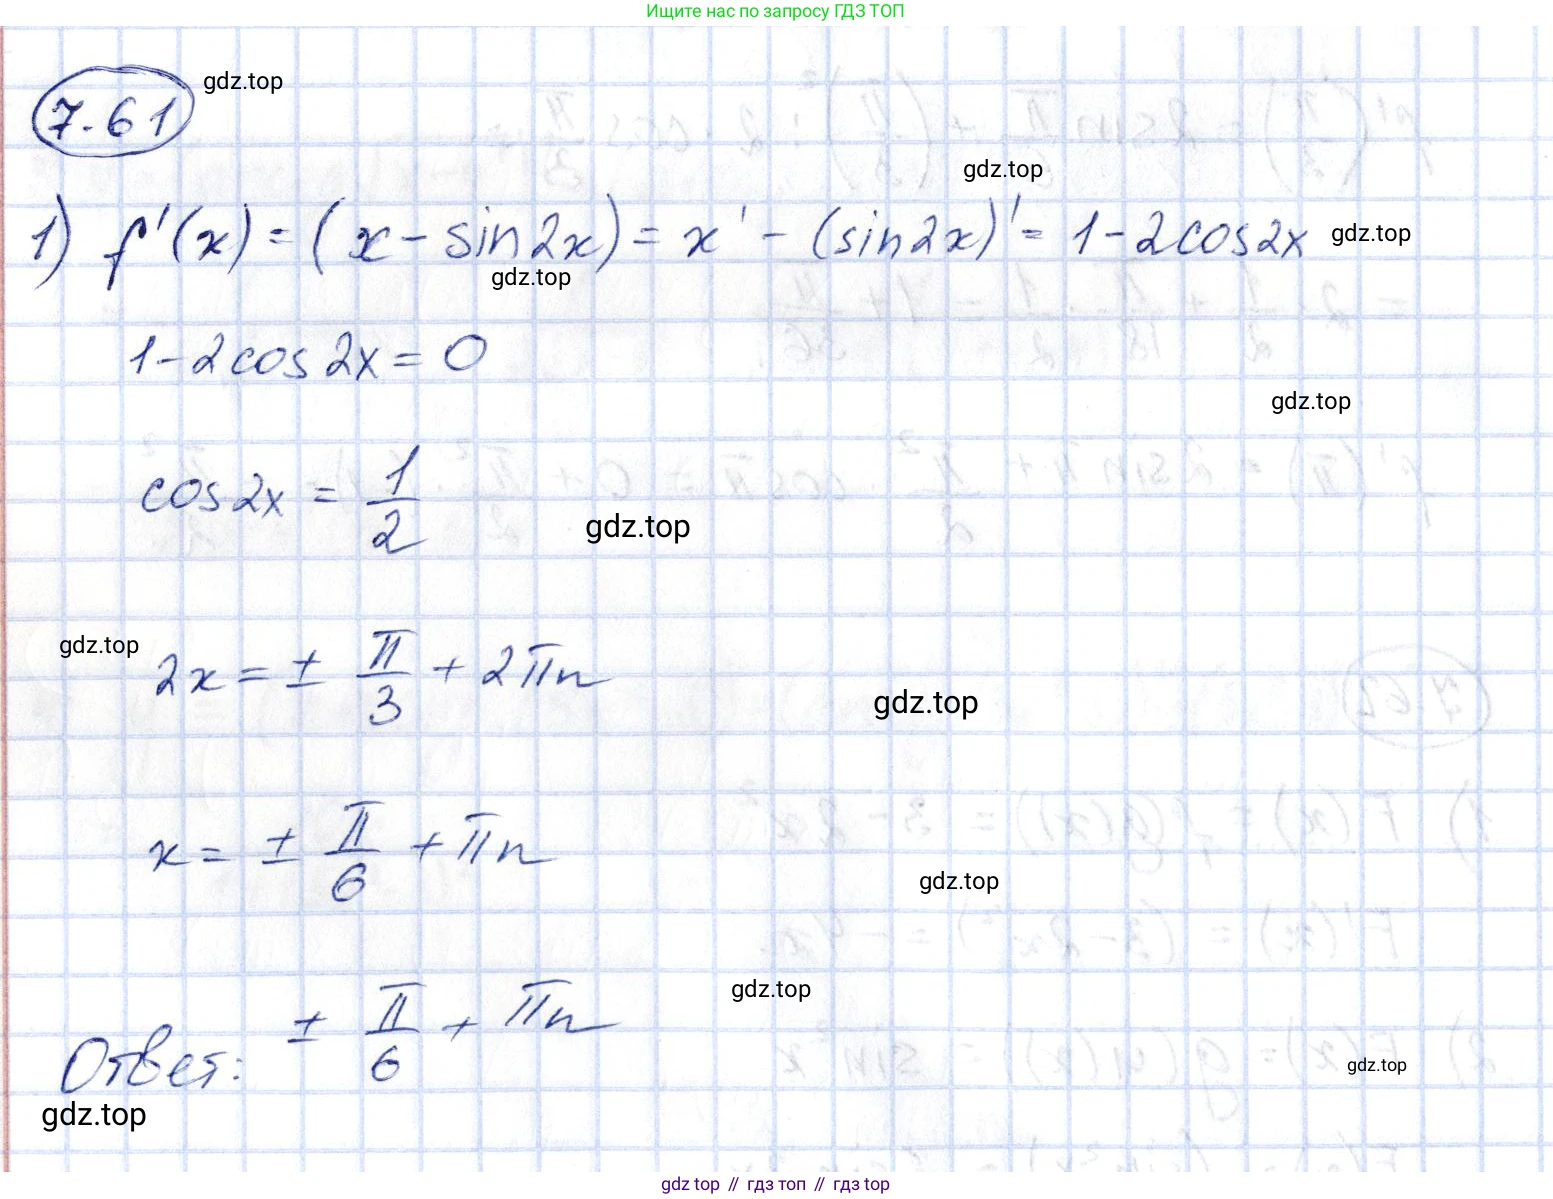 Ищите нас по запросу ГДЗ ТОП
7.61
gdz.top
gdz.top
1) f'(x) = (x - sin2x) = x' - (sin2x)' = 1 - 2cos2x
gdz.top
gdz.top
1 - 2cos2x = 0
gdz.top
cos2x = 1/2
gdz.top
gdz.top
2x = ± π/3 + 2πn
gdz.top
x = ± π/6 + πn
gdz.top
gdz.top
Ответ: ± π/6 + πn
gdz.top
gdz.top
gdz top // гдз топ // гдз top